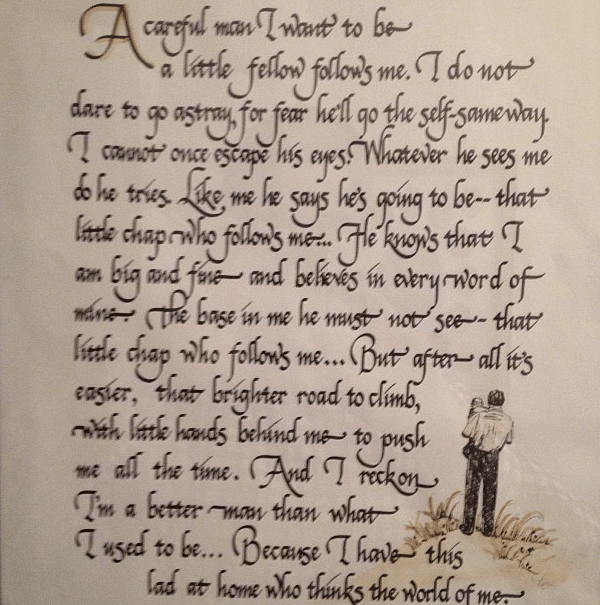 A careful man I want to be
a little fellow follows me. I do not
dare to go astray, for fear he'll go the self-same way.
I cannot once escape his eyes. Whatever he sees me
do he tries. Like me he says he's going to be-- that
little chap who follows me... He knows that I
am big and fine and believes in every word of
mine. The base in me he must not see-- that
little chap who follows me... But after all it's
easier, that brighter road to climb,
with little hands behind me to push
me all the time. And I reckon
I'm a better man than what
I used to be... Because I have this
lad at home who thinks the world of me.